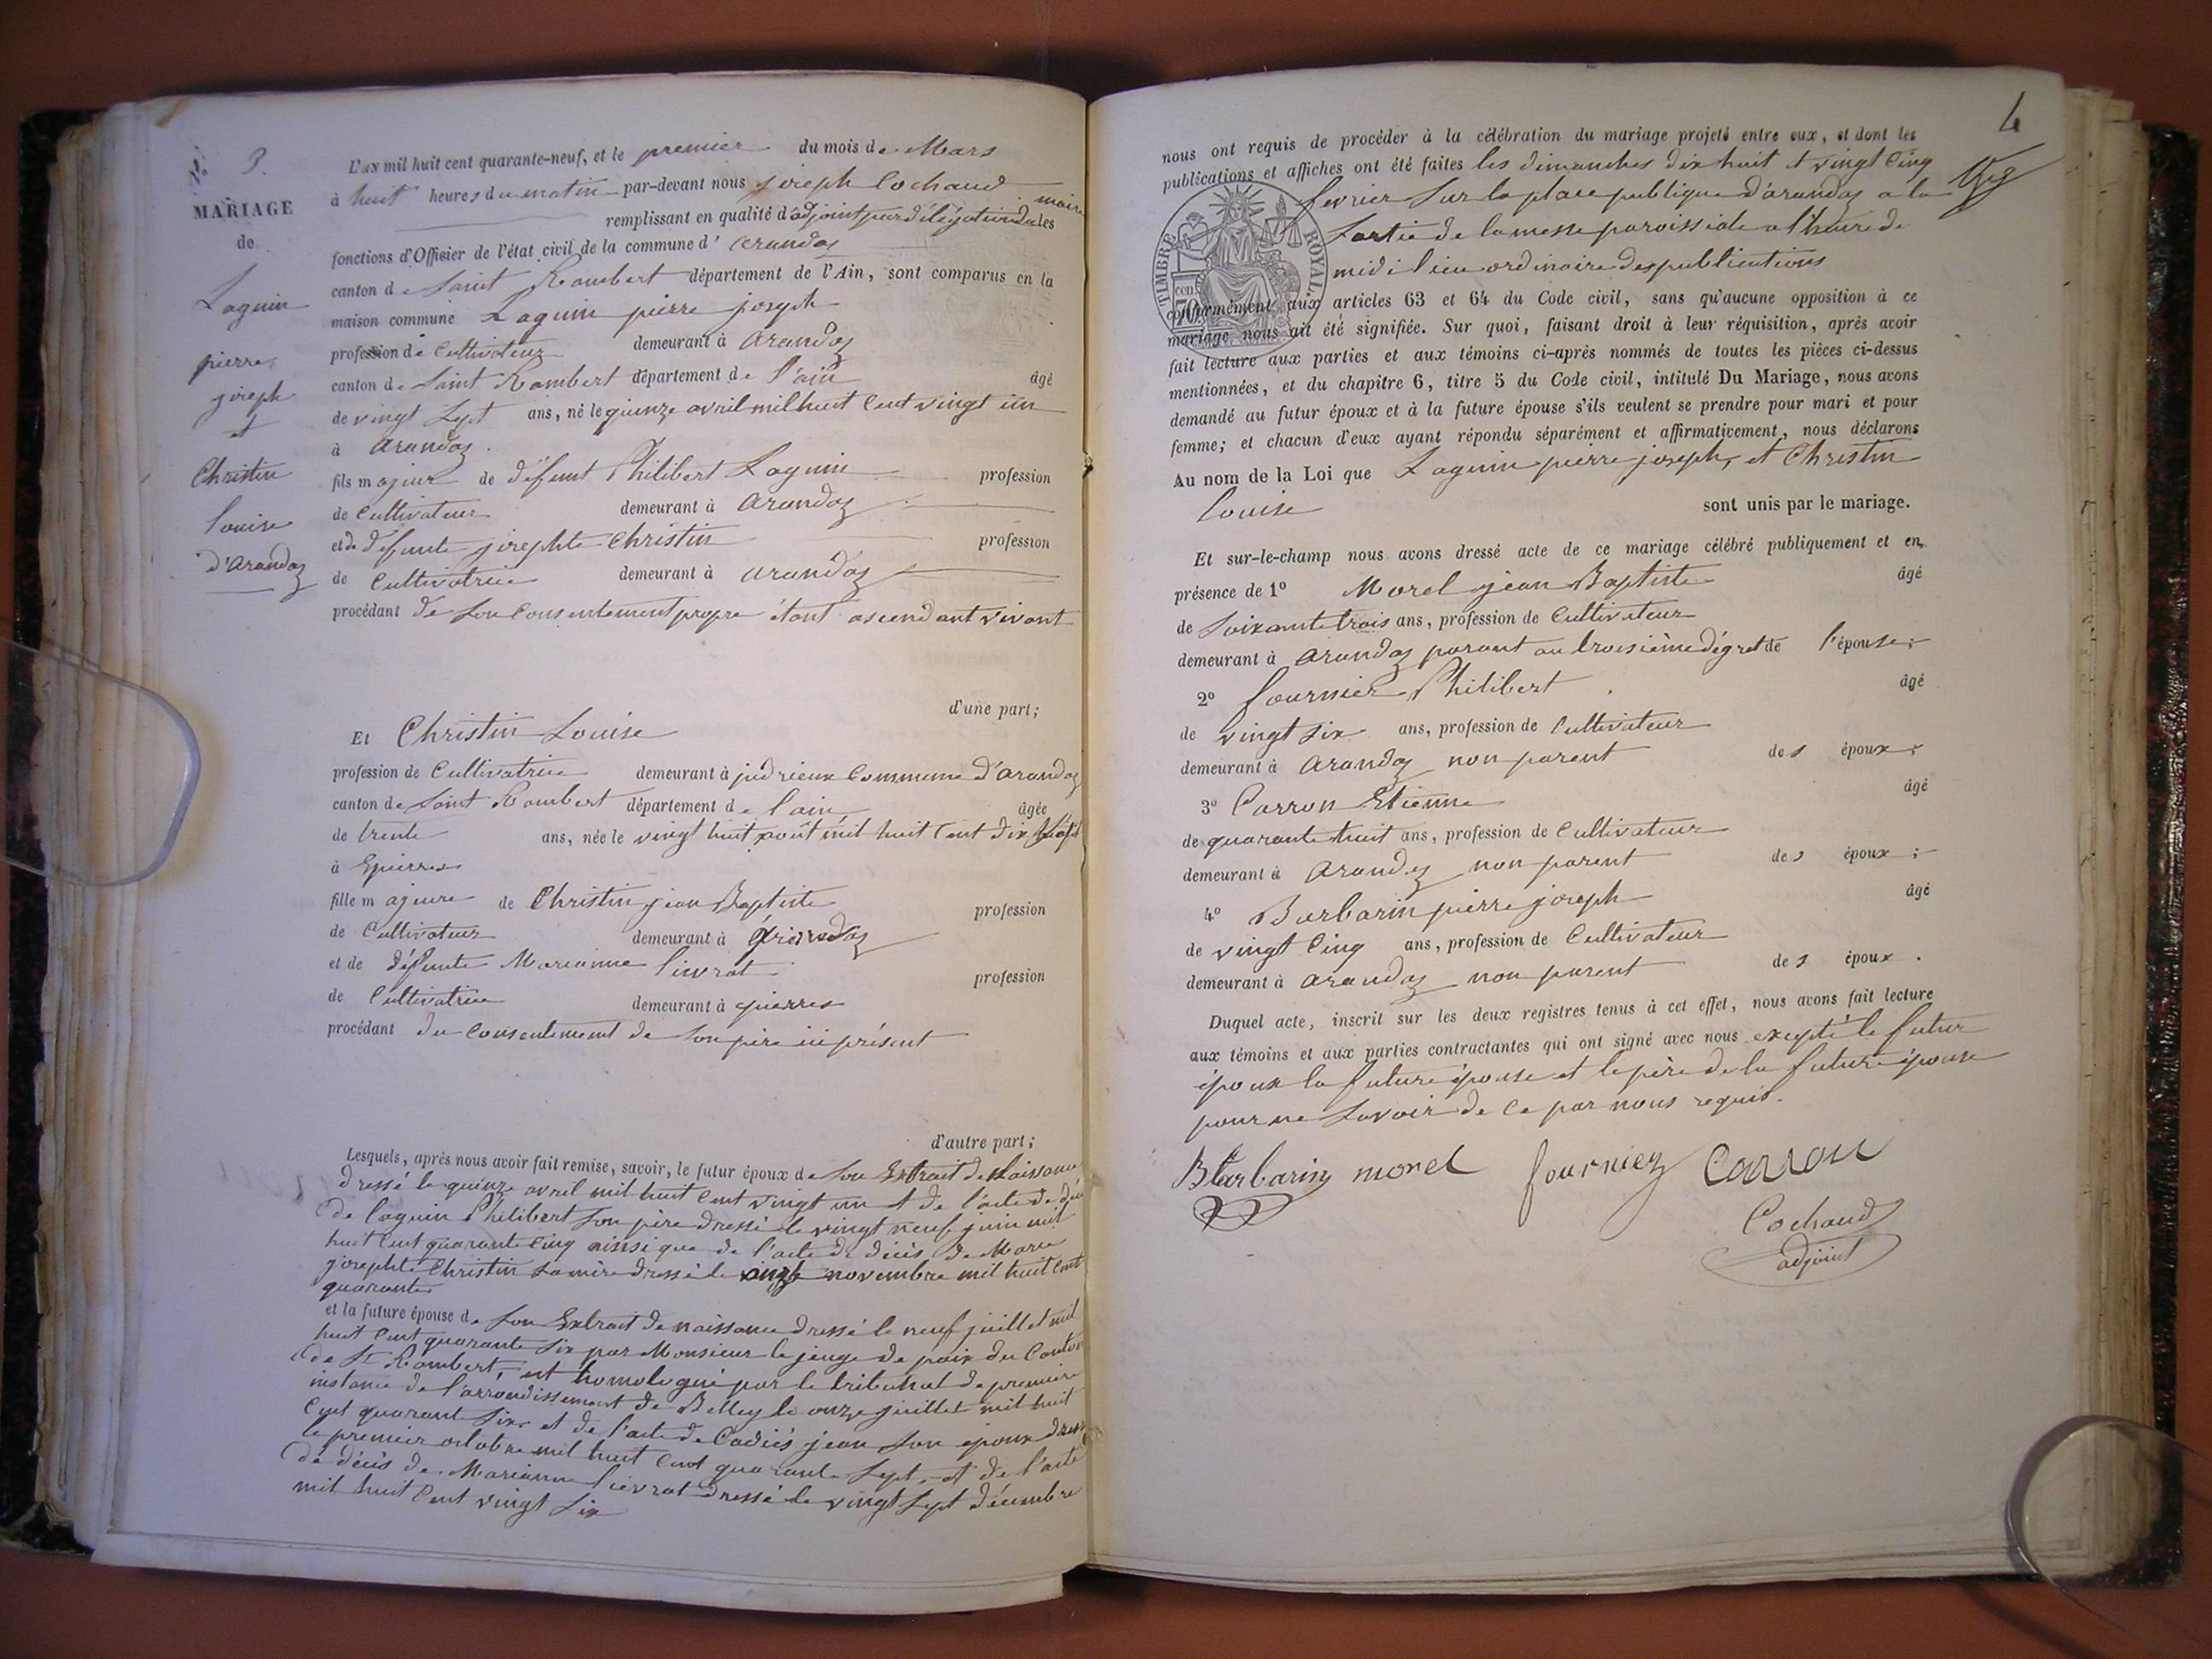 N.° 3.
MARIAGE
de
Laguin
pierre
joseph
et
Christin
louise
d'arandaz
L'AN mil huit cent quarante-neuf, et le premier du mois de Mars
à huit heures du matin par-devant nous joseph Cochaud
remplissant en qualité d'adjoint par délégation du maire les
fonctions d'Officier de l'état civil de la commune d'arandaz
canton de Saint Rambert département de l'Ain, sont comparus en la
maison commune Laguin pierre joseph
profession de Cultivateur demeurant à arandaz
canton de Saint Rambert département de l'ain âgé
de vingt Sept ans, né le quinze avril mil huit Cent vingt un
à arandaz.
fils majeur de défunt Philibert Laguin profession
de Cultivateur demeurant à arandaz
et de défunte josephte Christin profession
de Cultivatrice demeurant à arandaz
procédant de Son Consentement propre étant ascendant vivant
d'une part;
Et Christin Louise
profession de Cultivatrice demeurant à judrieux Commune d'arandaz
canton de Saint Rambert département de l'ain âgée
de trente ans, née le vingt huit août mil huit Cent dix
à Epierres
fille majeure de Christin jean Baptiste profession
de Cultivateur demeurant à
et de défunte Marianne lievrat profession
de Cultivatrice demeurant à epierres
procédant du Consentement de Son père ici présent
d'autre part;
Lesquels, après nous avoir fait remise, savoir, le futur époux de Son Extrait de Naissance
dressé le quinze avril mil huit Cent vingt un et de l'acte de
de laguin Philibert Son père dressé le vingt neuf juin mil
huit Cent quarante Cinq ainsi que de l'acte de décès de Marie
josephte Christin Sa mère dressé le novembre mil huit Cent
quarante
et la future épouse de Son Extrait de naissance dressé le neuf juillet mil
huit Cent quarante Six par Monsieur le jeuge de paix du Canton
de St Rambert, et homologué par le tribunal de première
instance de l'arrondissement de Belley le onze juillet mil huit
Cent quarante Six et de l'acte de Cadiés jean Son époux
le premier octobre mil huit Cent quarante Sept, et de l'acte
de décès de Marianne lievrat dressé le vingt Sept décembre
mil huit Cent vingt Six
4
nous ont requis de procéder à la célébration du mariage projeté entre eux, et dont les
publications et affiches ont été faites les dimanches dix huit et vingt Cinq
fevrier Sur la place publique d'arandaz a la
Sortie de la messe paroissiale a l'heure de
midi lieu ordinaire des publications
TIMBRE ROYAL
70 cen.
conformément aux articles 63 et 64 du Code civil, sans qu'aucune opposition à ce
mariage nous ait été signifiée. Sur quoi, faisant droit à leur réquisition, après avoir
fait lecture aux parties et aux témoins ci-après nommés de toutes les pièces ci-dessus
mentionnées, et du chapitre 6, titre 5 du Code civil, intitulé Du Mariage, nous avons
demandé au futur époux et à la future épouse s'ils veulent se prendre pour mari et pour
femme; et chacun d'eux ayant répondu séparément et affirmativement, nous déclarons
Au nom de la Loi que Laguin pierre joseph, et Christin
louise sont unis par le mariage.
Et sur-le-champ nous avons dressé acte de ce mariage célébré publiquement et en
présence de 1° Morel jean Baptiste âgé
de Soixante trois ans, profession de Cultivateur
demeurant à arandaz parant au troisième dégret de l'épouse;
2° fournier Philibert âgé
de vingt Six ans, profession de Cultivateur
demeurant à arandaz non parent des époux;
3° Carron Etienne âgé
de quarante huit ans, profession de Cultivateur
demeurant à arandaz non parent des époux;
4° Barbarin pierre joseph âgé
de vingt Cinq ans, profession de Cultivateur
demeurant à arandaz non parent des époux.
Duquel acte, inscrit sur les deux registres tenus à cet effet, nous avons fait lecture
aux témoins et aux parties contractantes qui ont signé avec nous excepté le futur
époux la future épouse et le père de la future épouse
pour ne Savoir de Ce par nous requis.
Barbarin morel fournier Carron
Cochaud
adjoint